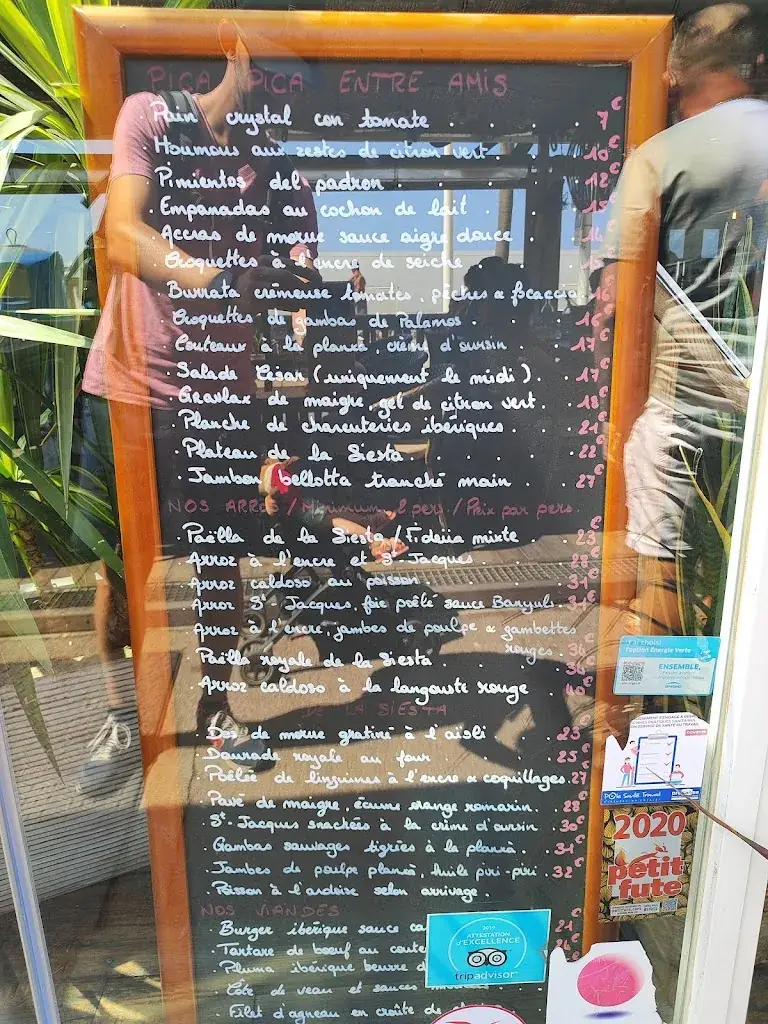 PICA PICA ENTRE AMIS
. Pain crystal con tomate . . . 7€
. Houmous aux zestes de citron vert . . 10€
. Pimientos del padron . . 12€
. Empanadas au cochon de lait . . 15€
. Accras de morue sauce aigre douce .
. Croquettes à l'encre de seiche . .
. Burrata crémeuse tomates, pêches & focaccia. 16€
. Croquettes de gambas de Palamos . . 16€
. Couteaux à la plancha, crème d'oursin . . 17€
. Salade César (uniquement le midi) . . 17€
. Gravlax de maigre, gel de citron vert . . 18€
. Planche de charcuteries ibériques . 21€
. Plateau de la Siesta . . 22€
. Jambon bellotta tranché main . 27€
NOS ARROS / Minimum 2 pers / Prix par pers
. Paëlla de la Siesta / Fideua mixte . 23€
. Arroz à l'encre et St-Jacques . . 28€
. Arroz caldoso au poisson . . 31€
. Arroz St-Jacques, foie poêlé sauce Banyuls. 31€
. Arroz à l'encre, jambes de poulpe & gambettes
rouges. 34€
. Paëlla royale de la Siesta . . 36€
. Arroz caldoso à la langouste rouge . 40€
DE LA SIESTA
. Dos de morue gratiné à l'aïoli . . 23€
. Daurade royale au four . . 25€
. Poêlée de linguines à l'encre & coquillages. 27€
. Pavé de maigre, écume orange romarin . 28€
. St-Jacques snackées à la crème d'oursin . 30€
. Gambas sauvages tigrées à la plancha . 31€
. Jambes de poulpe plancha, huile piri-piri . 32€
. Poisson à l'ardoise selon arrivage .
NOS VIANDES
. Burger ibérique sauce 21€
. Tartare de bœuf au coute
. Pluma ibérique beurre d
. Côte de veau et sauces
. Filet d'agneau en croûte de
J'ai choisi
l'option Énergie Verte
ENSEMBLE,
Pôle Santé Travail
2020
petit
futé
2019
ATTESTATION
d'EXCELLENCE
tripadvisor